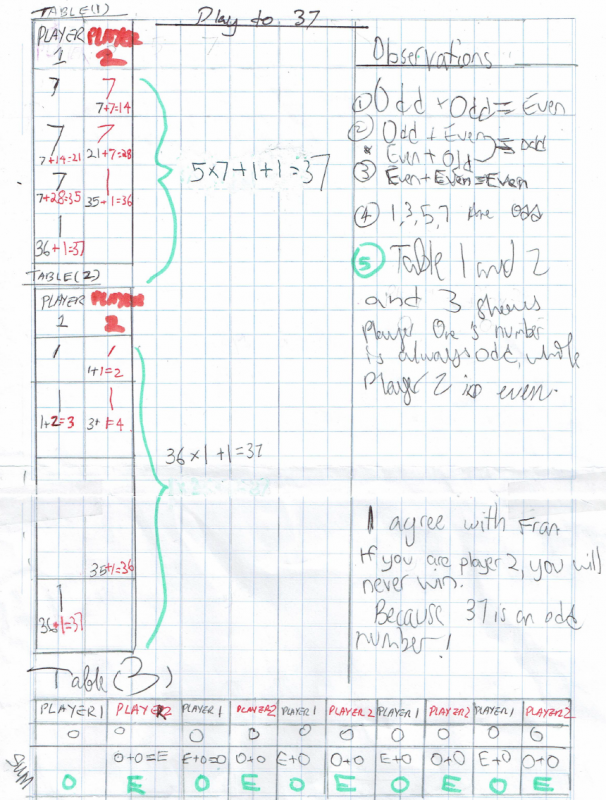 TABLE(1)
Play to 37
PLAYER PLAYER
1 2
7 7
7+7=14
7 7
7+14=21 21+7=28
7 1
7+28=35 35+1=36
1
36+1=37
5x7+1+1=37
TABLE(2)
PLAYER PLAYER
1 2
1 1
1+1=2
1 1
1+2=3 3+1=4
36x1+1=37
35+1=36
1
36+1=37
Observations
① Odd + Odd = Even
② Odd + Even
Even + Odd
= odd
③ Even + Even = Even
④ 1,3,5,7 are odd
⑤ Table 1 and 2
and 3 shows
Player One's number
is always odd, while
Player 2 is even.
I agree with Fran
If you are player 2, you will
never win.
Because 37 is an odd
number!
Table (3)
PLAYER1 PLAYER2 PLAYER1 PLAYER2 PLAYER1 PLAYER2 PLAYER1 PLAYER2 PLAYER1 PLAYER2
O O O O O O O O O O
O+O=E E+O=O O+O E+O O+O E+O O+O E+O O+O
SUM O E O E O E O E O E